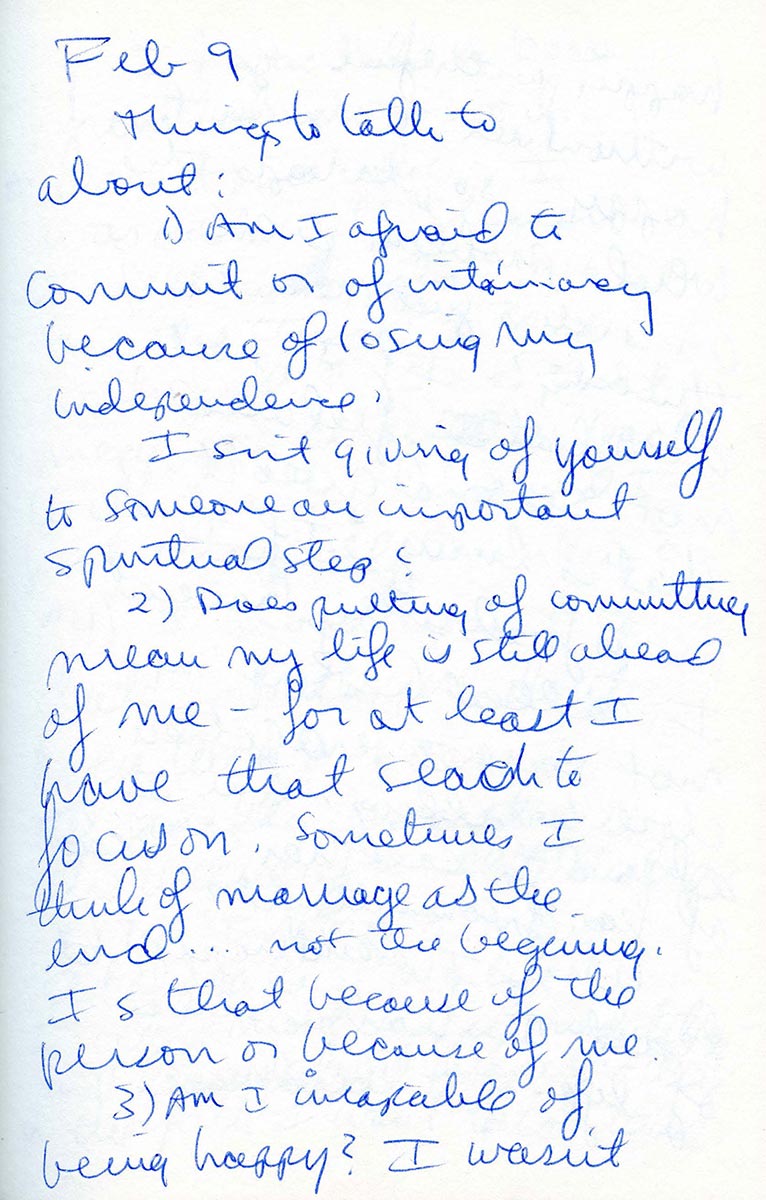 Feb 9
Things to talk to
about:
1) Am I afraid to
commit or of intamacy
because of losing my
independence.
Isn't giving of yourself
to someone an important
spiritual step?
2) Does putting of committing
mean my life is still ahead
of me - for at least I
have that search to
focus on. Sometimes I
think of marriage as the
end... not the begining.
Is that because of the
person or because of me.
3) Am I incapable of
being happy? I wasn't